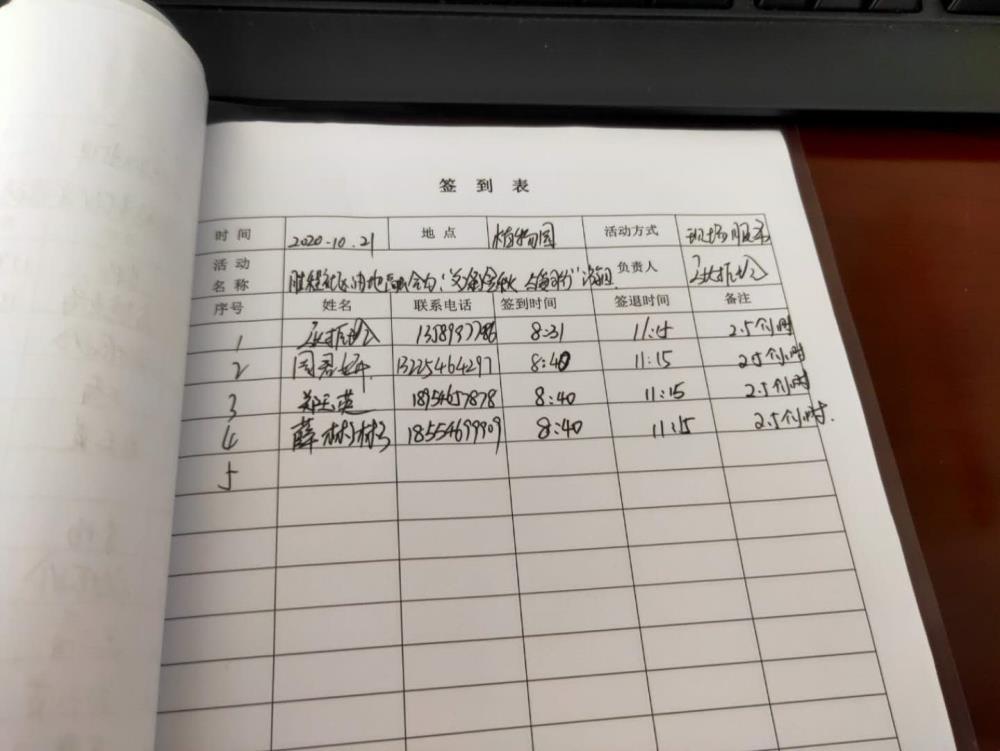 签到表
时间 2020.10.21 地点 植物园 活动方式 现场服务
活动名称 负责人
序号 姓名 联系电话 签到时间 签退时间 备注
1 8:31 11:15 2.5个小时
2 周君婷 13225464297 8:40 11:15 2.5个小时
3 郑玉英 18954657878 8:40 11:15 2.5个小时
4 薛林林 18554699909 8:40 11:15 2.5个小时.
5